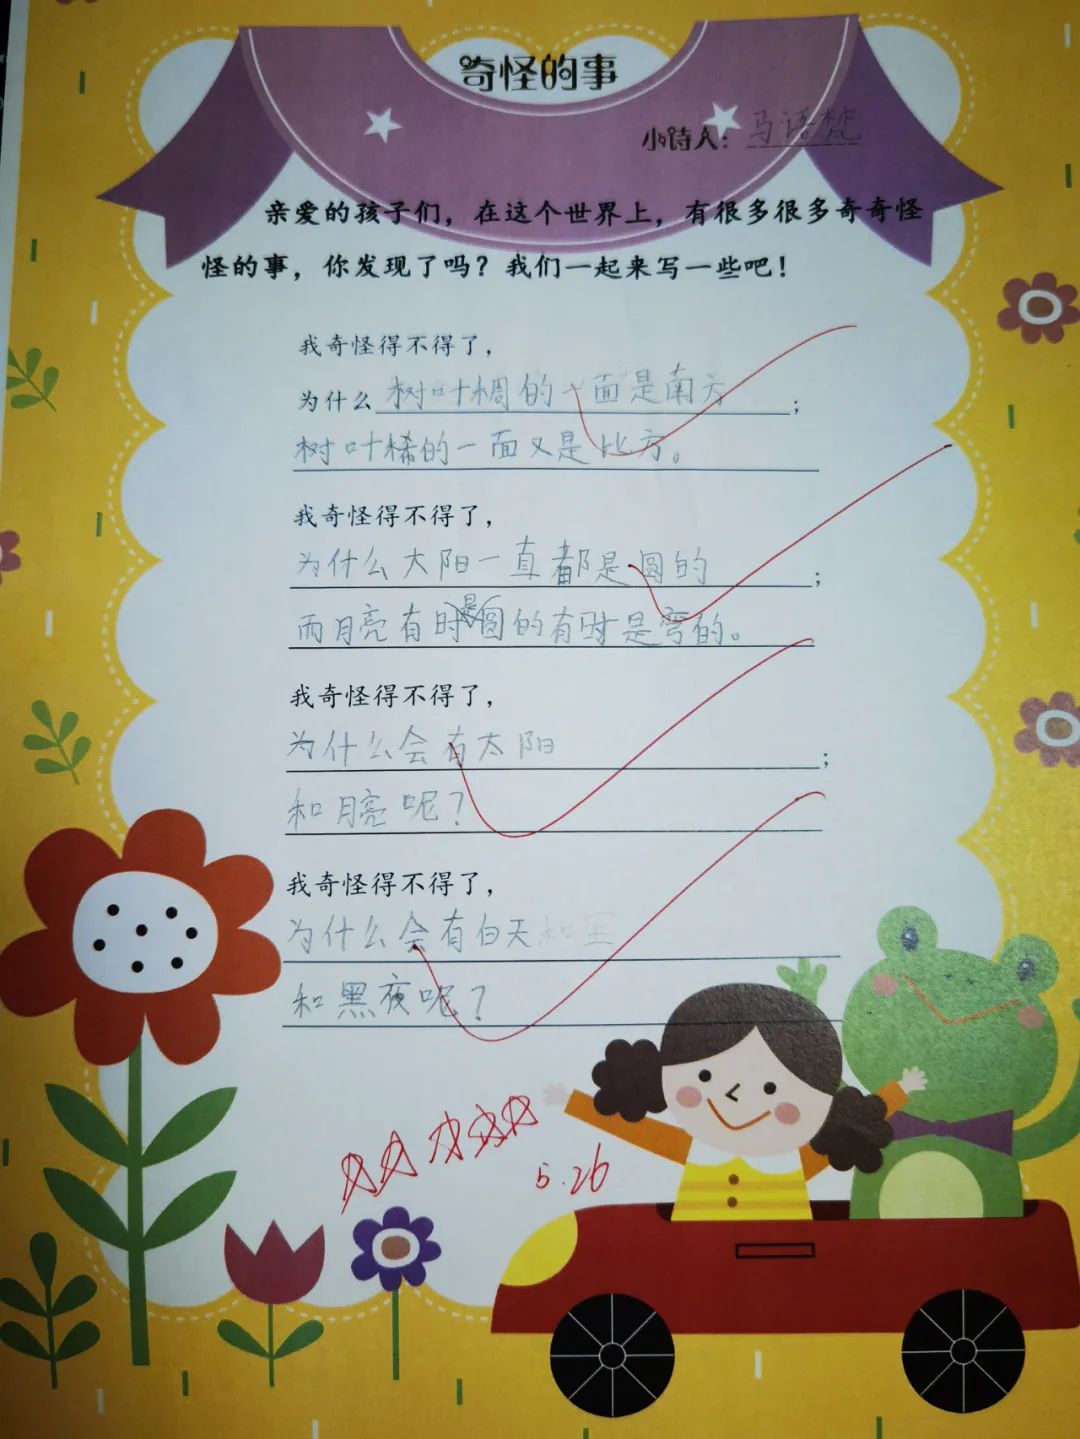 奇怪的事
小诗人：马语梵
亲爱的孩子们，在这个世界上，有很多很多奇奇怪
怪的事，你发现了吗？我们一起来写一些吧！
我奇怪得不得了，
为什么树叶稠的一面是南方；
树叶稀的一面又是比方。
我奇怪得不得了，
为什么太阳一直都是圆的；
而月亮有时圆的有时是弯的。
我奇怪得不得了，
为什么会有太阳；
和月亮呢？
我奇怪得不得了，
为什么会有白天
和黑夜呢？
5.26